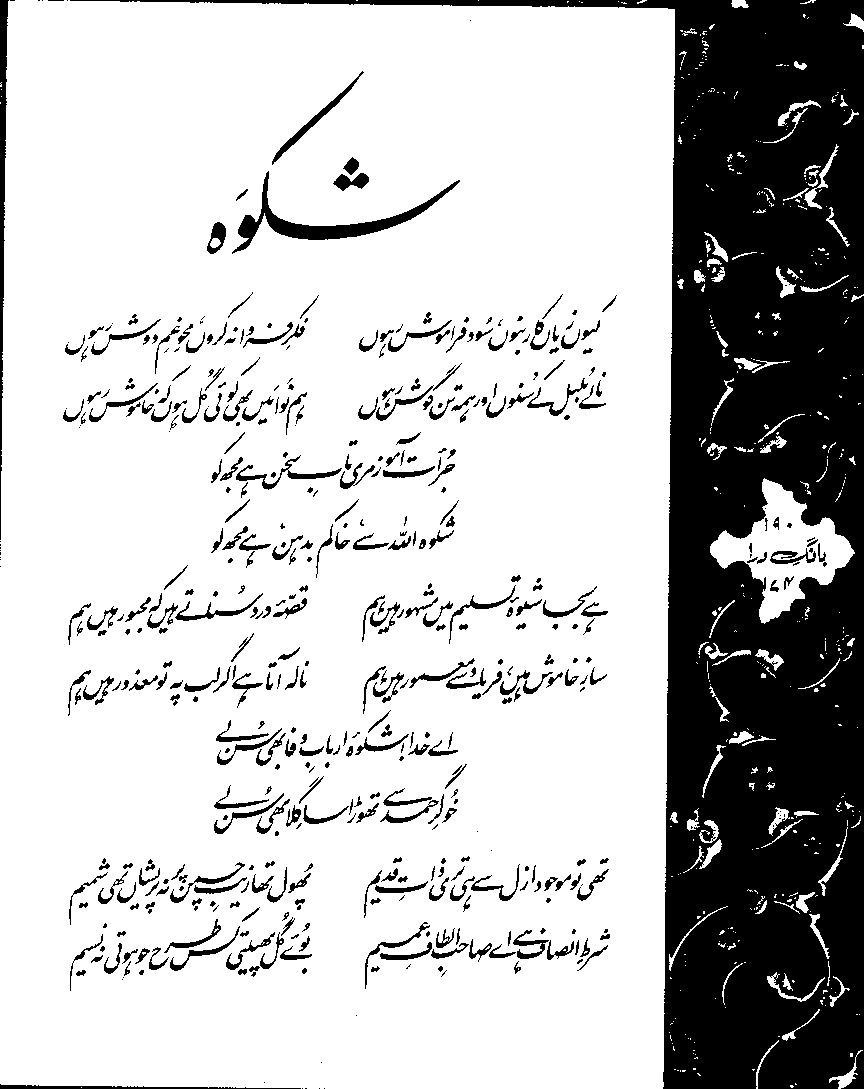 شکوَہ
کیوں زیاں کار بنوں، سُود فراموش رہوں
فکرِ فردا نہ کروں محوِ غمِ دوش رہوں
نالے بُلبل کے سُنوں اور ہمہ تن گوش رہوں
ہم نَوا مَیں بھی کوئی گُل ہوں کہ خاموش رہوں
جُرأت آموز مری تابِ سخن ہے مجھ کو
شکوہ اللہ سے، خاکم بدہن، ہے مجھ کو
ہے بجا شیوۂ تسلیم میں مشہور ہیں ہم
قصّۂ درد سُناتے ہیں کہ مجبور ہیں ہم
سازِ خاموش ہیں، فریاد سے معمور ہیں ہم
نالہ آتا ہے اگر لب پہ تو معذور ہیں ہم
اے خدا! شکوۂ اربابِ وفا بھی سُن لے
خُوگرِ حمد سے تھوڑا سا گِلا بھی سُن لے
تھی تو موجود ازل سے ہی تری ذاتِ قدیم
پھُول تھا زیبِ چمن پر نہ پریشاں تھی شمیم
شرطِ انصاف ہے اے صاحبِ الطافِ عمیم
بُوئے گُل پھیلتی کس طرح جو ہوتی نہ نسیم
۱۹۰
بانگِ درا
۱۷۴